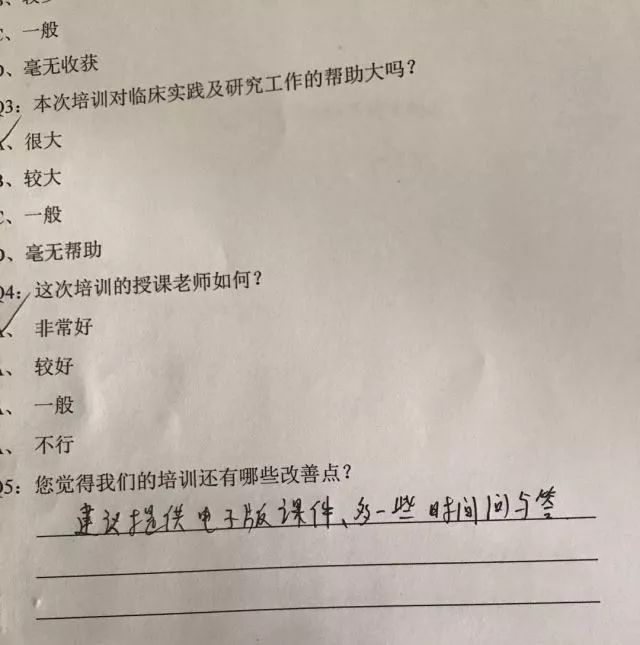 C、一般
D、毫无收获
Q3：本次培训对临床实践及研究工作的帮助大吗？
A、很大
B、较大
C、一般
D、毫无帮助
Q4：这次培训的授课老师如何？
A、非常好
A、较好
A、一般
A、不行
Q5：您觉得我们的培训还有哪些改善点？
建议提供电子版课件、多一些时间问与答